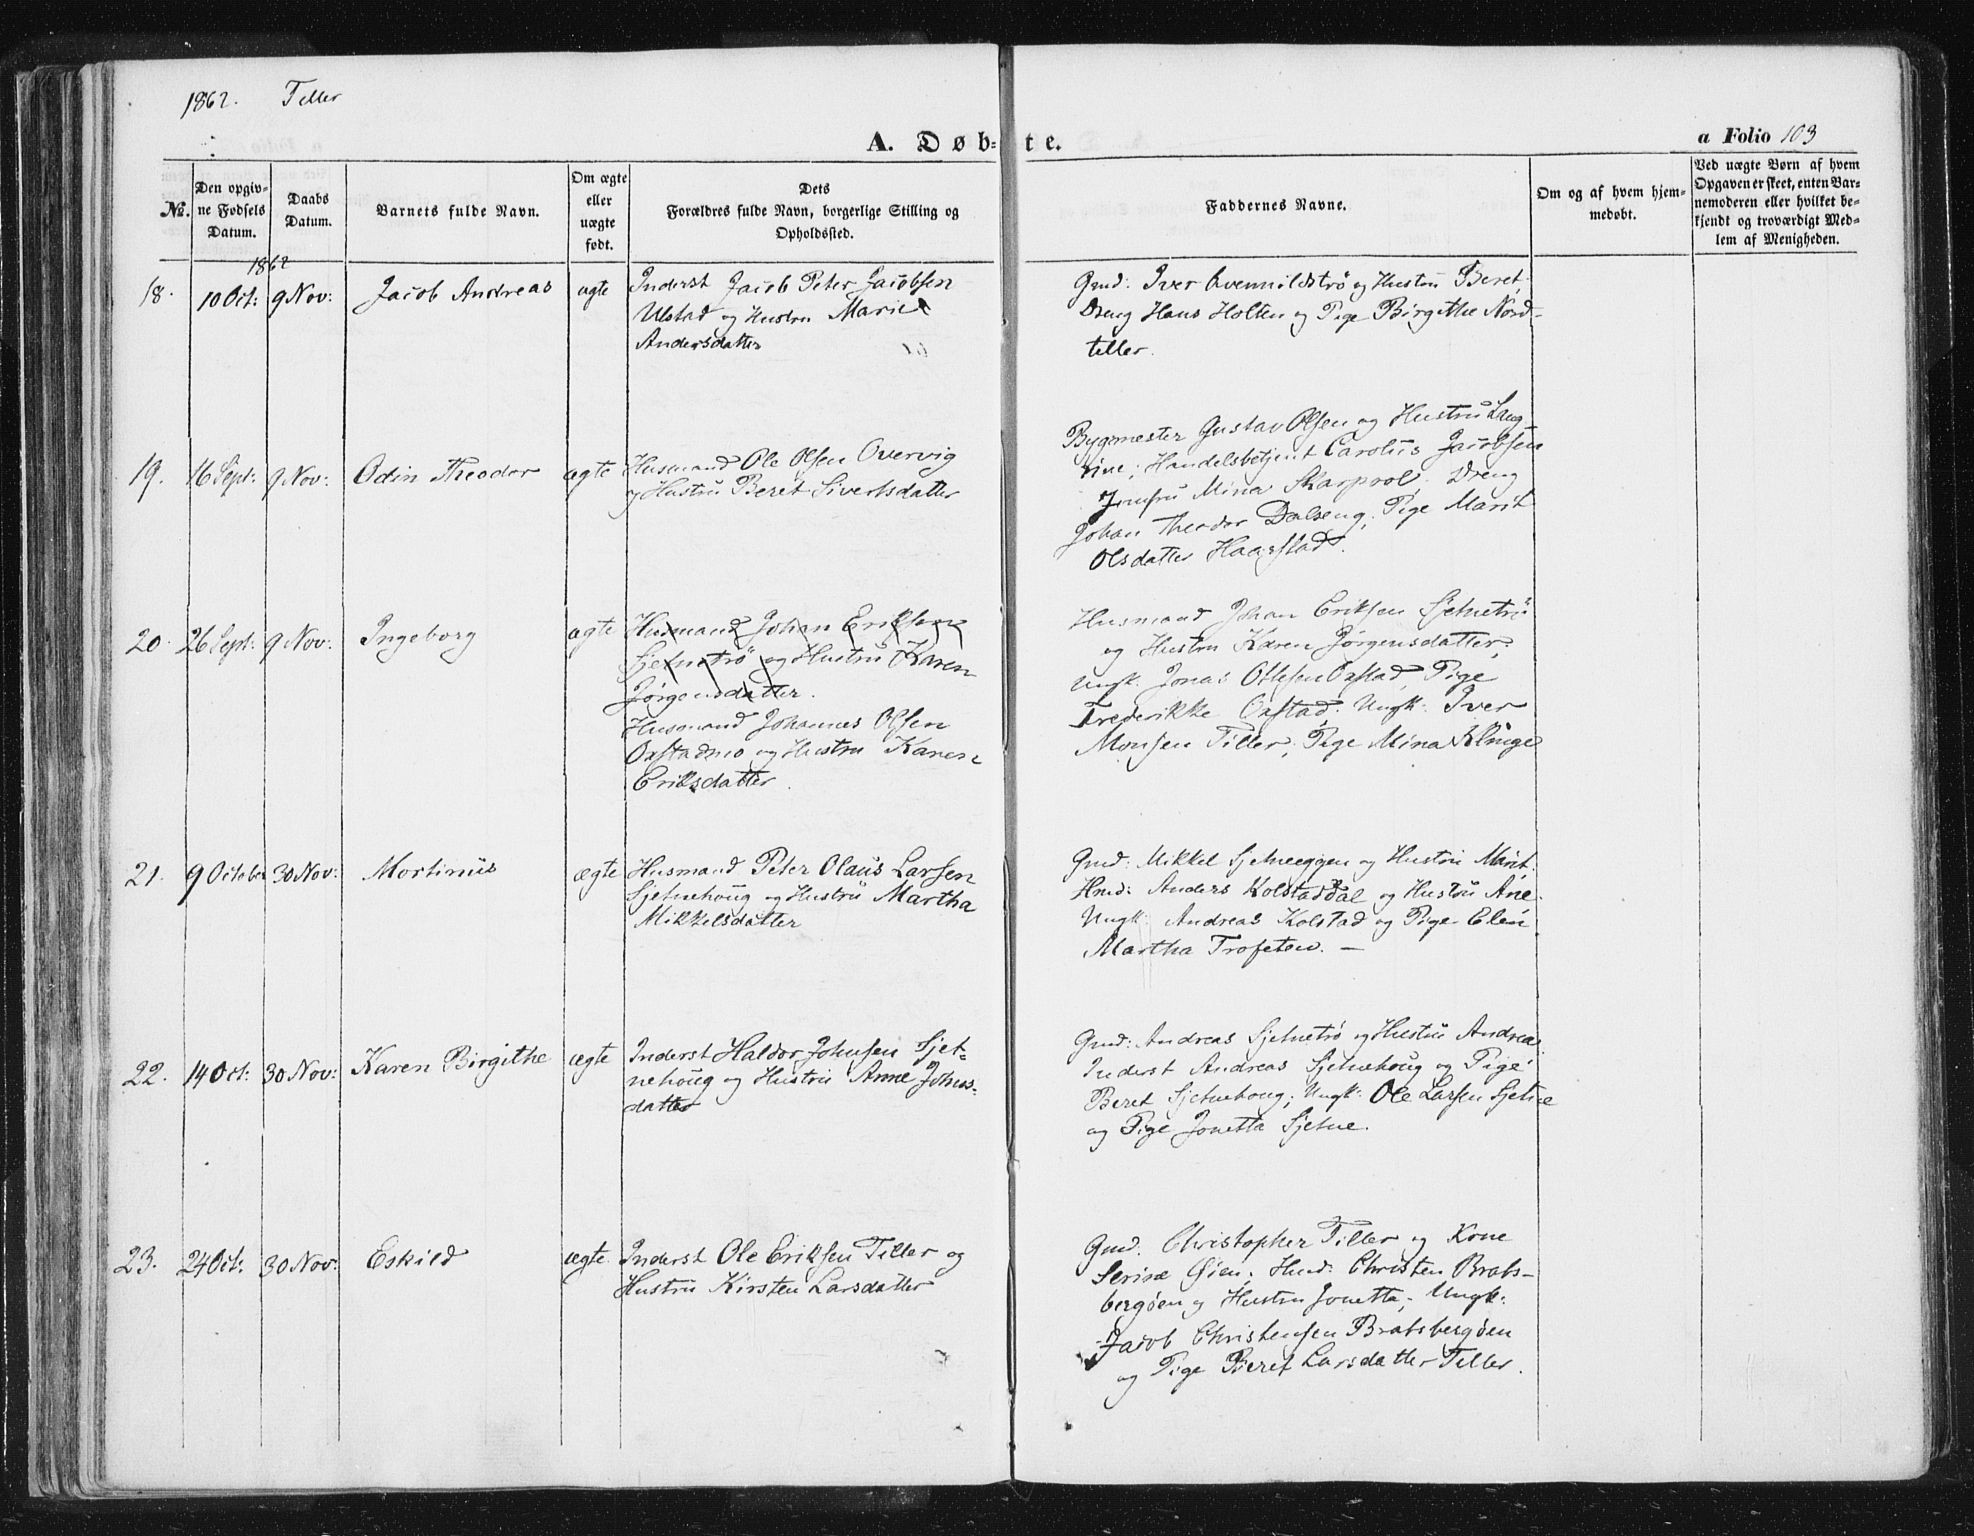 1862. Tiller
A. Døbte.
a Folio 103
No.
Den opgiv-
ne Fødsels
Datum.
Daabs
Datum.
Barnets fulde Navn.
Om ægte
eller
uægte
født.
Dets
Forældres fulde Navn, borgerlige Stilling og
Opholdssted.
Faddernes Navne.
Om og af hvem hjem-
medøbt.
Ved uægte Børn af hvem
Opgaven er skeet, enten Bar-
nemoderen eller hvilket be-
kjendt og troværdigt Med-
lem af Menigheden.
1862
18. 10 Oct: 9 Nov: Jacob Andreas ægte
Inderst Jacob Peter Jacobsen
Ulstad og Hustru Marie
Andersdatter
Gmd: Iver Kvennildstrø og Hustru Beret,
Dreng Hans Holten og Pige Birgithe Nord-
tiller.
19. 16 Sept: 9 Nov: Odin Theodor ægte
Husmand Ole Olsen Overvig
og Hustru Beret Sivertsdatter
Bygmester Gustav Olsen og Hustru Laug
rine; Handelsbetjent Carolus Jacobsen
Jomfru Mina Skarpvol, Dreng
Johan Theodor Dalseng, Pige Marit
Olsdatter Haagstad.
20. 26 Sept: 9 Nov: Ingeborg ægte
Husmand Johan Eriksen
Sjetnetrö og Hustru Karen
Jørgensdatter.
Husmand Johannes Olsen
Oxstadmo og Hustru Karen
Eriksdatter.
Husmand Johan Eriksen Sjetnetrö
og Hustru Karen Jørgensdatter;
Ungk. Jonas Ottesen Oxstad, Pige
Frederikke Oxstad, Ungk: Iver
Monsen Tiller, Pige Mina Klinge
21. 9 October 30 Nov: Mortinus ægte
Husmand Peter Olaus Larsen
Sjetnehoug og Hustru Martha
Mikkelsdatter
Gmd: Mikkel Sjetneeggen og Hustru Marit.
Hmd: Anders Kolstaddal og Hustru Ane.
Ungk: Andreas Kolstad og Pige Elen
Martha Trofeten. —
22. 14 Oct: 30 Nov: Karen Birgithe ægte
Inderst Haldor Johnsen Sjet-
nehoug og Hustru Anne Johns-
datter
Gmd: Andreas Sjetnetrø og Hustru Andrea.
Inderst Andreas Sjetnehoug og Pige
Beret Sjetnehoug; Ungk: Ole Larsen Sjetne
og Pige Jonetta Sjetne.
23. 24 Oct: 30 Nov: Eskild ægte
Inderst Ole Eriksen Tiller og
Hustru Kirsten Larsdatter
Gmd. Christopher Tiller og Kone
Serine Øien, Hmd: Christen Brats-
bergøen og Hustru Jonetta; Ungk:
Jacob Christensen Bratsbergøen
og Pige Beret Larsdatter Tiller.